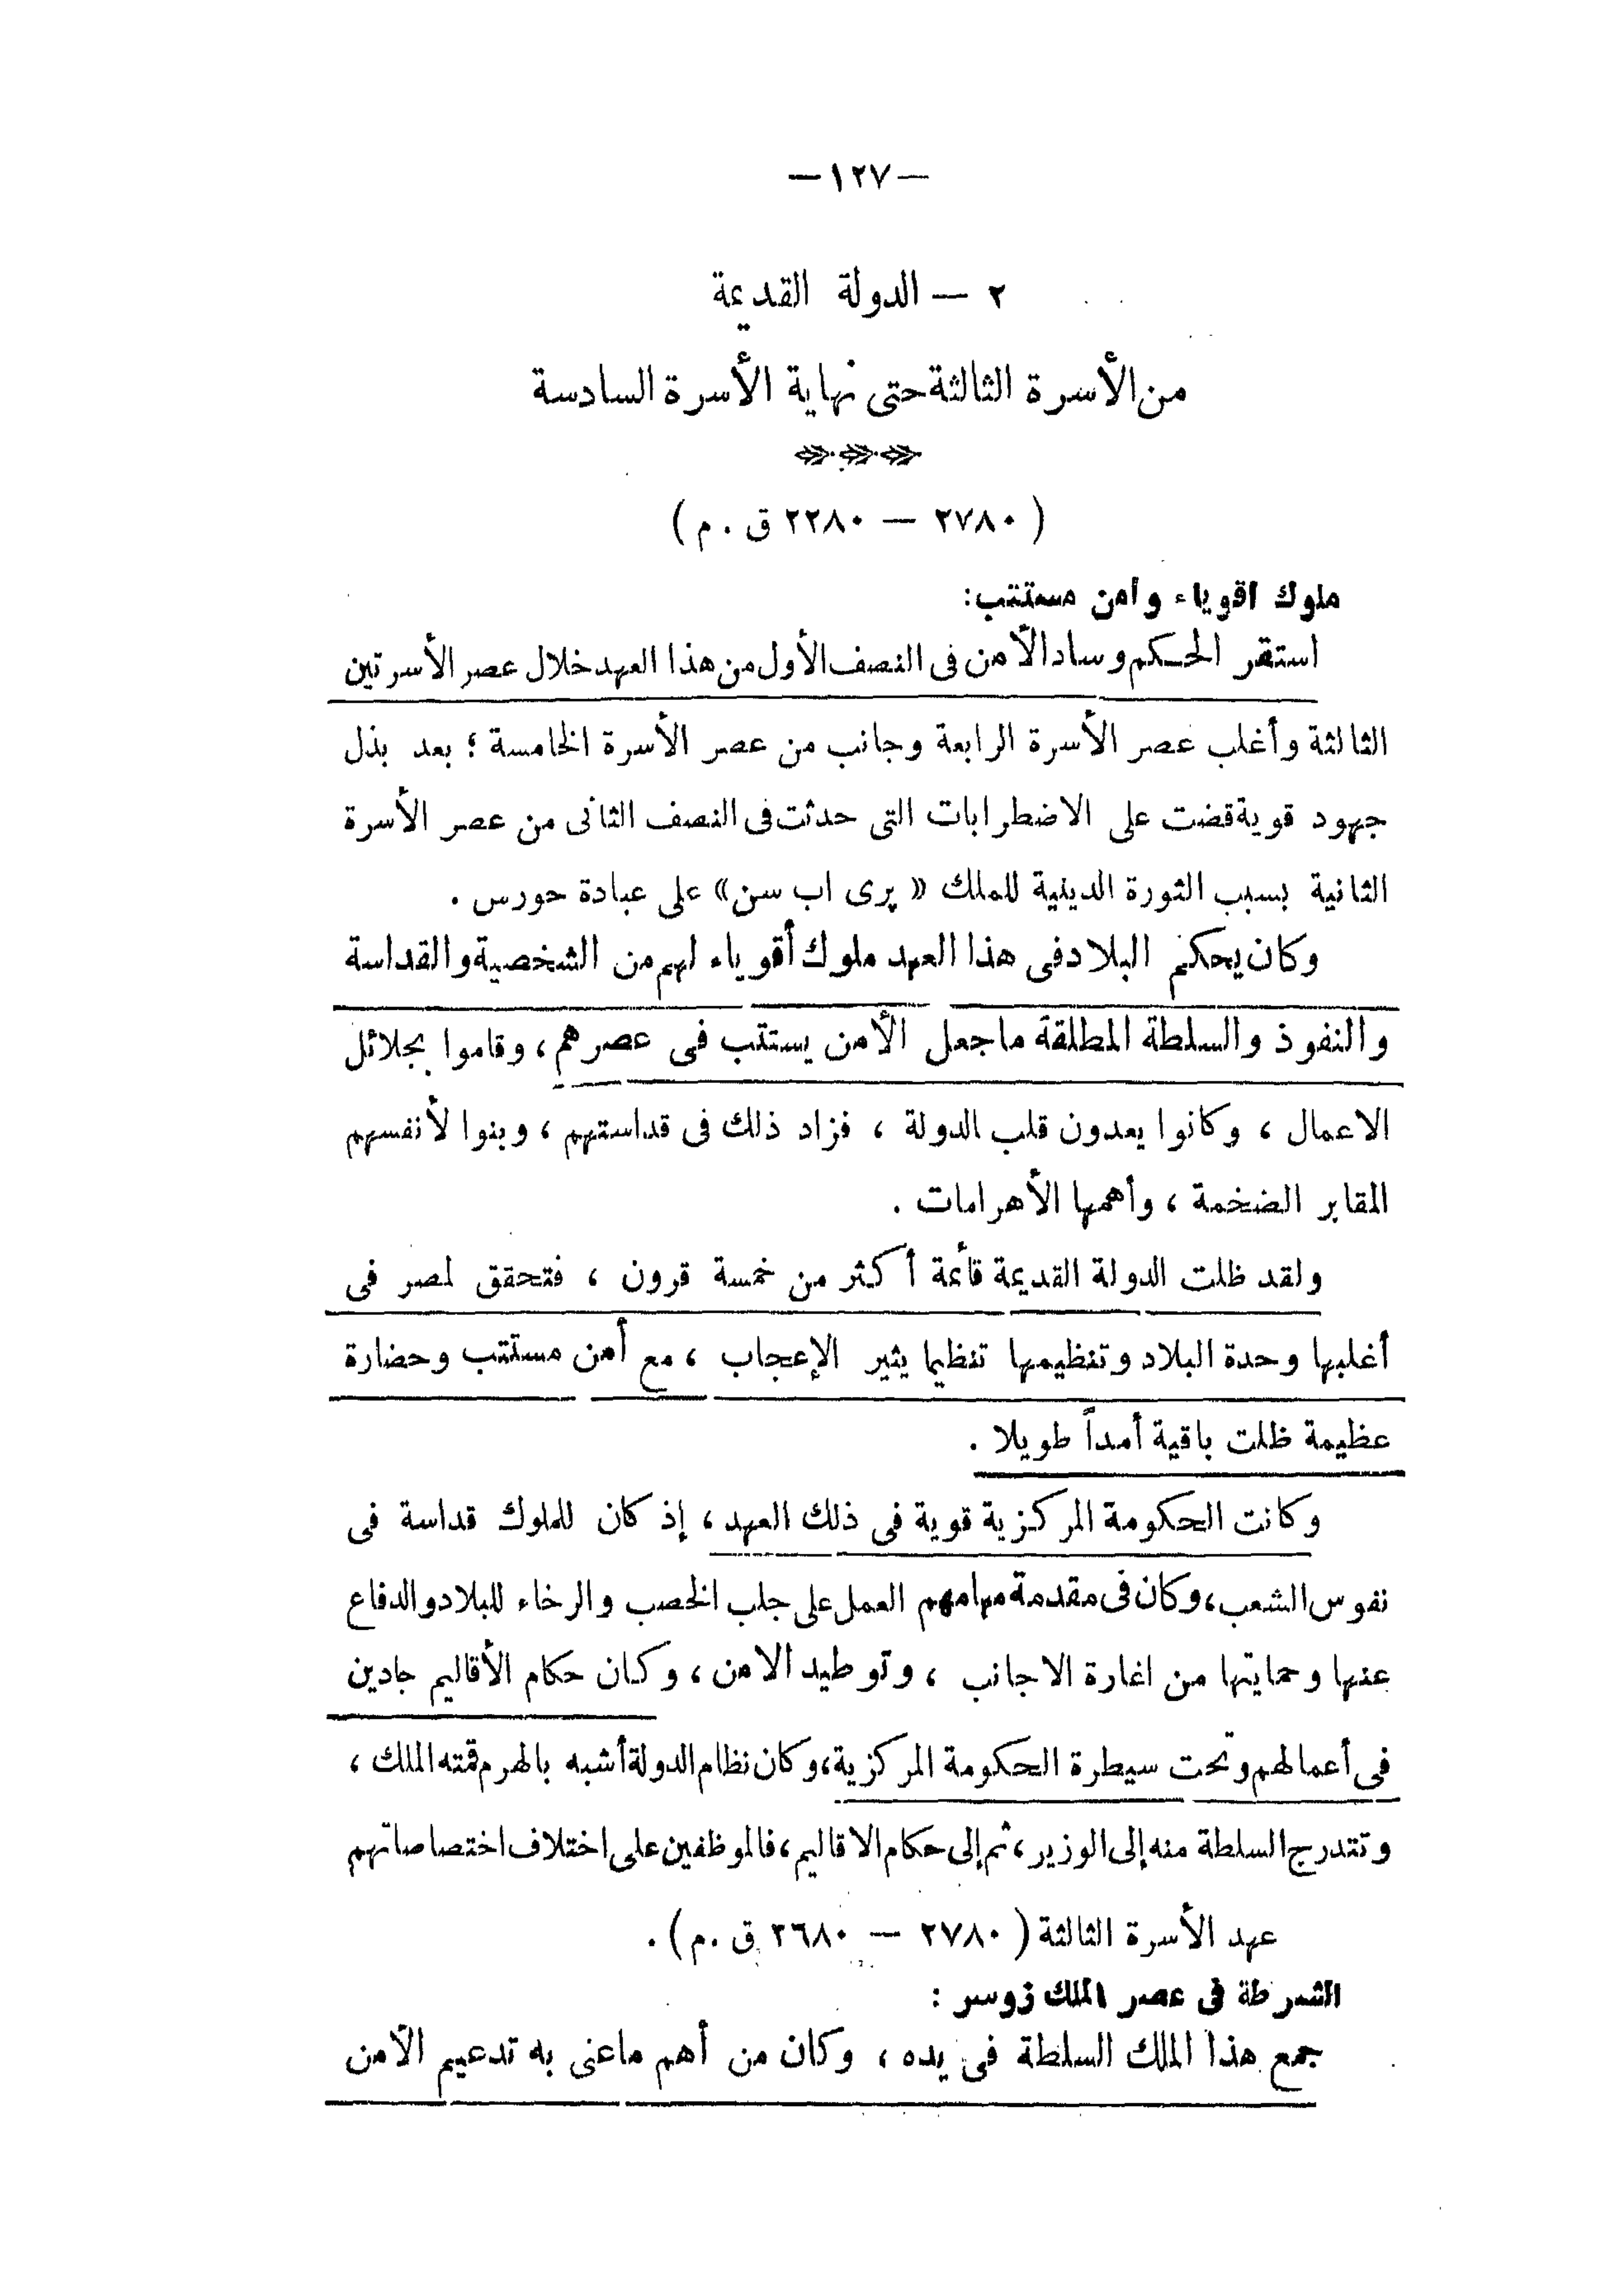 — ١٢٧ —
٢ — الدولة القديمة
من الأسرة الثالثة حتى نهاية الأسرة السادسة
( ٢٧٨٠ — ٢٢٨٠ ق . م )
ملوك اقوياء وامن مستتب:
استقر الحكم وساد الأمن فى النصف الأول من هذا العهد خلال عصر الأسرتين
الثالثة وأغلب عصر الأسرة الرابعة وجانب من عصر الأسرة الخامسة ؛ بعد بذل
جهود قوية قضت على الاضطرابات التى حدثت فى النصف الثانى من عصر الأسرة
الثانية بسبب الثورة الدينية للملك « پرى اب سن » على عبادة حورس .
وكان يحكم البلاد فى هذا العهد ملوك أقوياء لهم من الشخصية والقداسة
والنفوذ والسلطة المطلقة ما جعل الأمن يستتب فى عصرهم ، وقاموا بجلائل
الاعمال ، وكانوا يعدون قلب الدولة ، فزاد ذلك فى قداستهم ، وبنوا لأنفسهم
المقابر الضخمة ، وأهمها الأهرامات .
ولقد ظلت الدولة القديمة قائمة أكثر من خمسة قرون ، فتحقق لمصر فى
أغلبها وحدة البلاد وتنظيمها تنظيما يثير الإعجاب ، مع أمن مستتب وحضارة
عظيمة ظلت باقية أمداً طويلا .
وكانت الحكومة المركزية قوية فى ذلك العهد ، إذ كان للملوك قداسة فى
نفوس الشعب ، وكان فى مقدمة مهامهم العمل على جلب الخصب والرخاء للبلاد والدفاع
عنها وحمايتها من اغارة الاجانب ، وتوطيد الامن ، وكان حكام الأقاليم جادين
فى أعمالهم وتحت سيطرة الحكومة المركزية ، وكان نظام الدولة أشبه بالهرم قمته الملك ،
وتتدرج السلطة منه إلى الوزير ، ثم إلى حكام الاقاليم ، فالموظفين على اختلاف اختصاصاتهم
عهد الأسرة الثالثة ( ٢٧٨٠ — ٢٦٨٠ ق .م ) .
الشرطة فى عصر الملك زوسر :
جمع هذا الملك السلطة فى يده ، وكان من أهم ما عنى به تدعيم الأمن